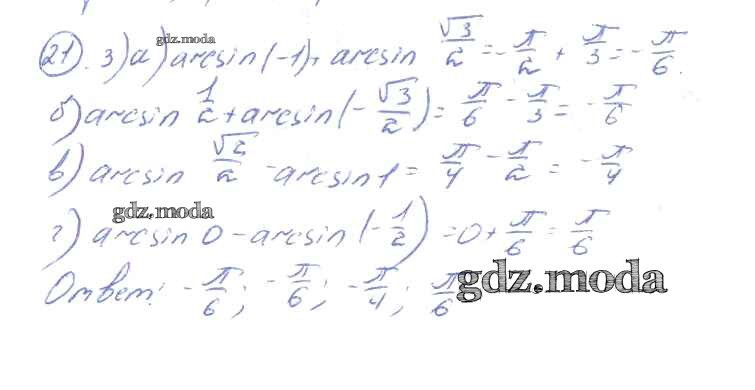 gdz.moda
21. 3) а) arcsin(-1) + arcsin √3/2 = -π/2 + π/3 = -π/6.
б) arcsin 1/2 + arcsin(-√3/2) = π/6 - π/3 = -π/6
в) arcsin √2/2 - arcsin 1 = π/4 - π/2 = -π/4
gdz.moda
г) arcsin 0 - arcsin(-1/2) = 0 + π/6 = π/6
Ответ: -π/6; -π/6; -π/4; π/6
gdz.moda